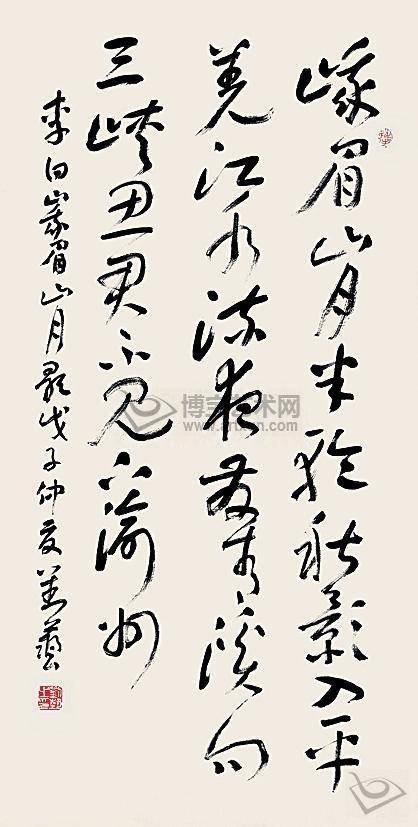 峨眉山月半輪秋影入平
羌江水流夜發清溪向
三峽思君不見下渝州
李白峨眉山月歌戊子仲夏
博宝艺术网